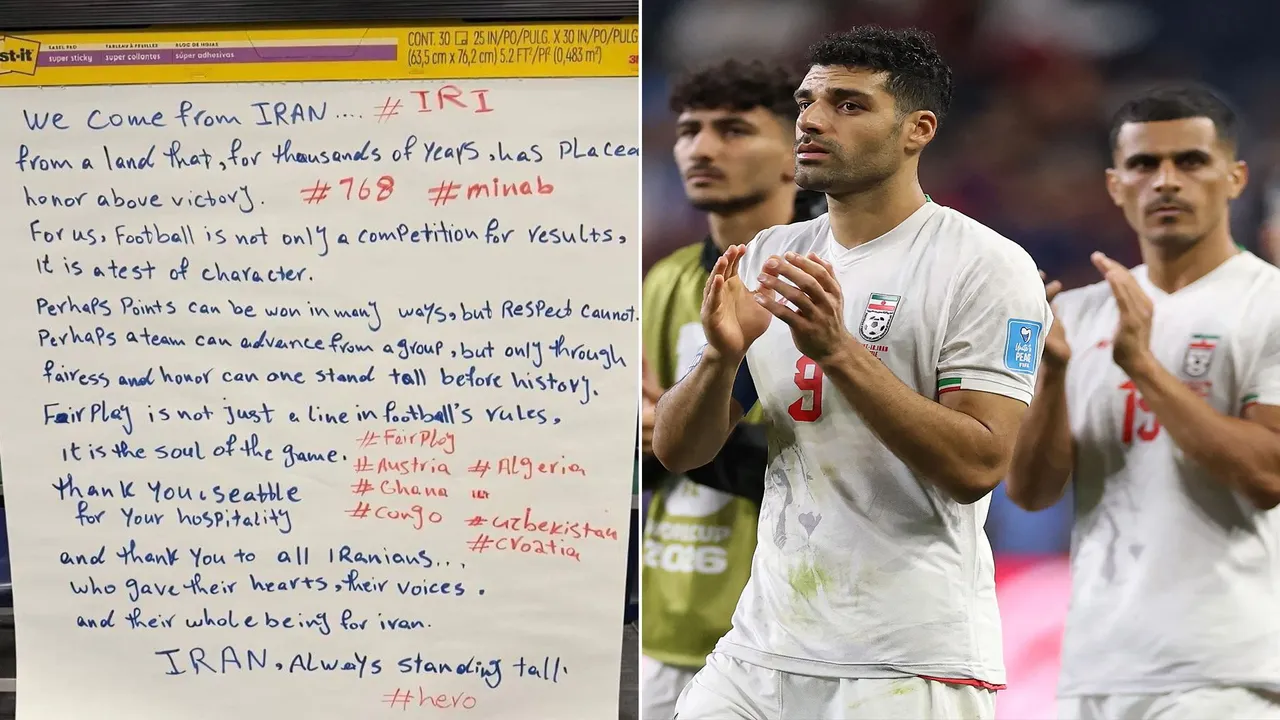 st-it
EASEL PAD TABLEAU À FEUILLES BLOC DE HOJAS
super sticky super collantes súper adhesivas
CONT. 30 25 IN/PO/PULG. X 30 IN/PO/PULG.
(63,5 cm x 76,2 cm) 5.2 FT²/PI² (0,483 m²)
We come from IRAN.... #IRI
from a land that, for thousands of years, has placed
honor above victory. #768 #minab
For us, Football is not only a competition for results,
it is a test of character.
Perhaps Points can be won in many ways, but Respect cannot.
Perhaps a team can advance from a group, but only through
fairess and honor can one stand tall before history.
Fair Play is not just a line in football's rules,
it is the soul of the game. #FairPlay
#Austria #Algeria
thank you, seattle #Ghana
for your hospitality #congo #uzbekistan
#croatia
and thank you to all IRanians...
who gave their hearts, their voices.
and their whole being for iran.
IRAN, Always standing tall.
#hero
9
2026